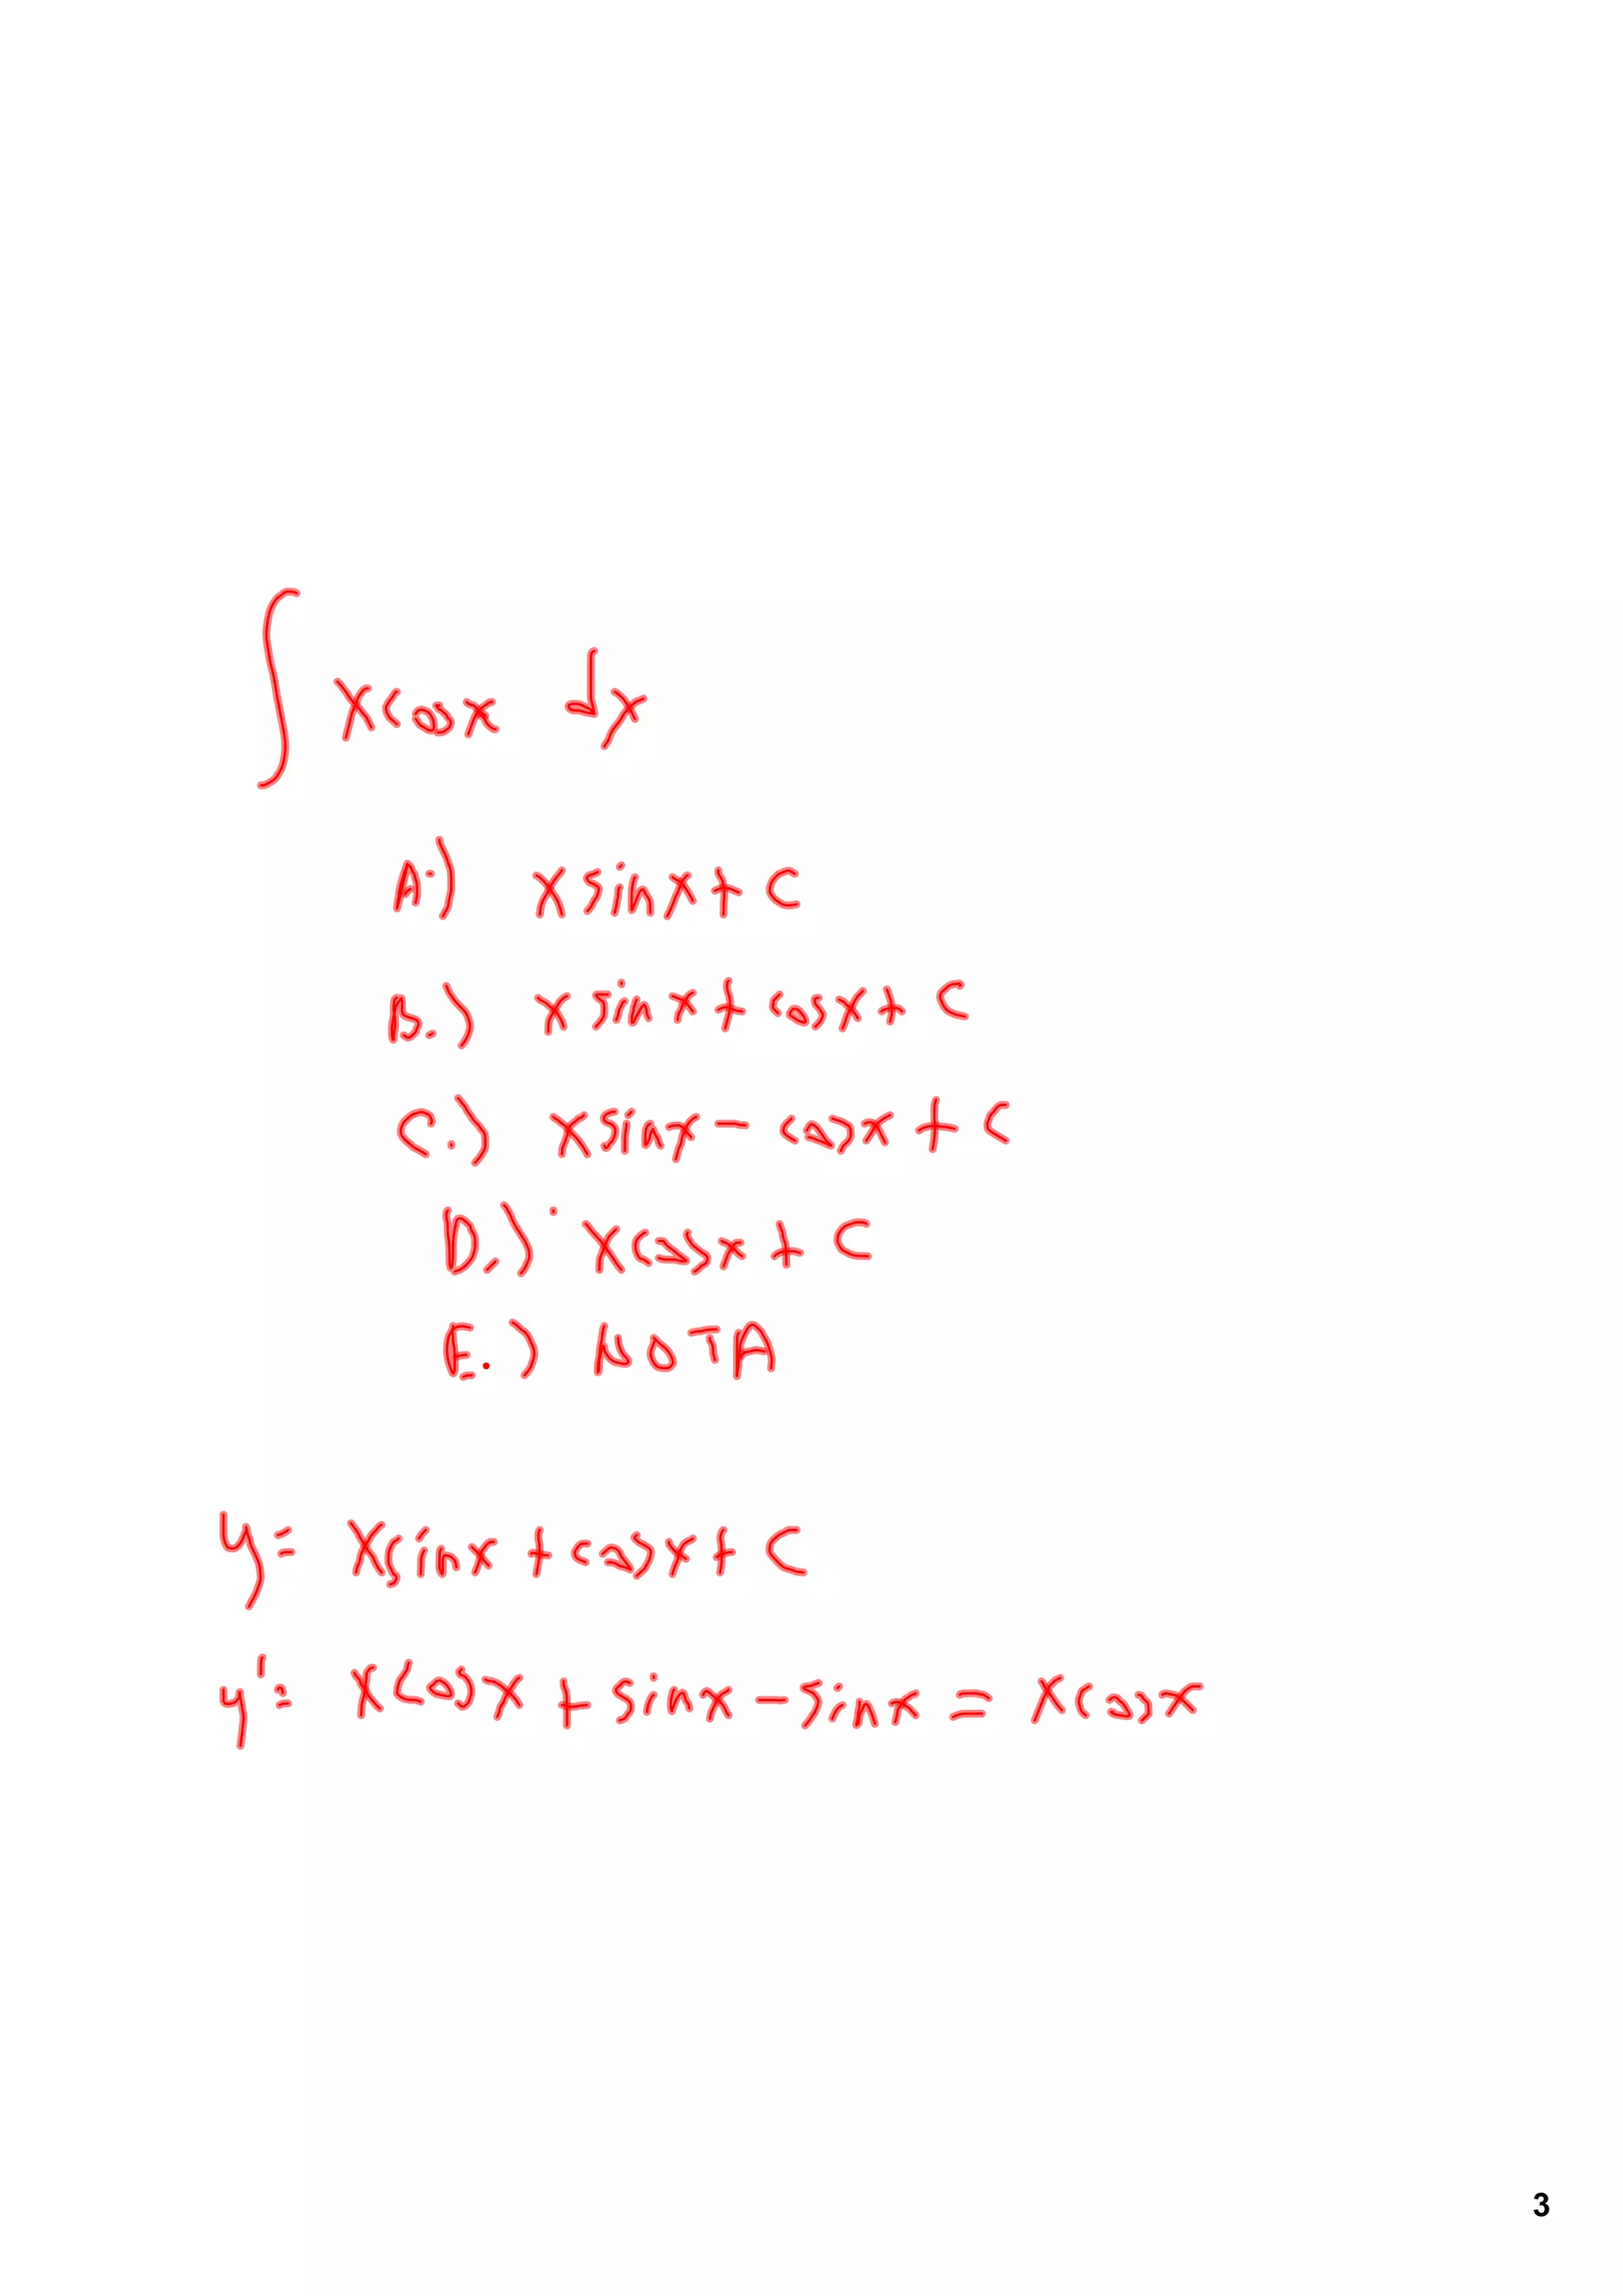 ∫ x cos x dx
A.) x sin x + C
B.) x sin x + cos x + C
C.) x sin x - cos x + C
D.) x cos x + C
E.) NOTA
y = x sin x + cos x + C
y' = x cos x + sin x - sin x = x cos x
3